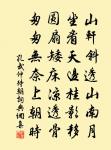 山軒斜透山南月
坐看天邊桂影移
圓扇矮床涼透骨
匆匆無奈上朝時
孔武仲侍朝詞典